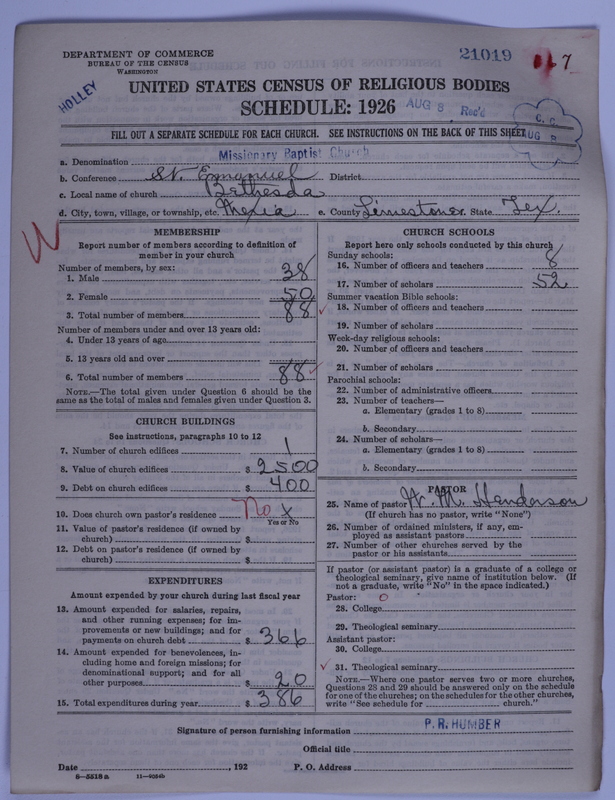 DEPARTMENT OF COMMERCE
BUREAU OF THE CENSUS
WASHINGTON
21019
HOLLEY
UNITED STATES CENSUS OF RELIGIOUS BODIES
SCHEDULE: 1926
AUG 8 Rec'd
C. C.
AUG 8
FILL OUT A SEPARATE SCHEDULE FOR EACH CHURCH. SEE INSTRUCTIONS ON THE BACK OF THIS SHEET
a. Denomination Missionary Baptist Church
b. Conference St. Emanuel District
c. Local name of church Bethesda
d. City, town, village, or township, etc. Mexia e. County Limestone State Tex.
MEMBERSHIP
Report number of members according to definition of member in your church
Number of members, by sex:
1. Male 38
2. Female 50
3. Total number of members 88
Number of members under and over 13 years old:
4. Under 13 years of age
5. 13 years old and over
6. Total number of members 88
NOTE.—The total given under Question 6 should be the same as the total of males and females given under Question 3.
CHURCH BUILDINGS
See instructions, paragraphs 10 to 12
7. Number of church edifices 1
8. Value of church edifices $ 2500
9. Debt on church edifices $ 400
10. Does church own pastor's residence No x
Yes or No
11. Value of pastor's residence (if owned by church) $
12. Debt on pastor's residence (if owned by church) $
EXPENDITURES
Amount expended by your church during last fiscal year
13. Amount expended for salaries, repairs, and other running expenses; for improvements or new buildings; and for payments on church debt $ 366
14. Amount expended for benevolences, including home and foreign missions; for denominational support; and for all other purposes $ 20
15. Total expenditures during year $ 386
CHURCH SCHOOLS
Report here only schools conducted by this church
Sunday schools:
16. Number of officers and teachers 8
17. Number of scholars 52
Summer vacation Bible schools:
18. Number of officers and teachers
19. Number of scholars
Week-day religious schools:
20. Number of officers and teachers
21. Number of scholars
Parochial schools:
22. Number of administrative officers
23. Number of teachers—
a. Elementary (grades 1 to 8)
b. Secondary
24. Number of scholars—
a. Elementary (grades 1 to 8)
b. Secondary
PASTOR
25. Name of pastor W. M. Henderson
(If church has no pastor, write "None")
26. Number of ordained ministers, if any, employed as assistant pastors
27. Number of other churches served by the pastor or his assistants
If pastor (or assistant pastor) is a graduate of a college or theological seminary, give name of institution below. (If not a graduate, write "No" in the space indicated.)
Pastor: 0
28. College
29. Theological seminary
Assistant pastor:
30. College
31. Theological seminary
NOTE.—Where one pastor serves two or more churches, Questions 28 and 29 should be answered only on the schedule for one of the churches; on the schedules for the other churches, write "See schedule for church."
Signature of person furnishing information P. R. HUMBER
Official title
Date , 192 P. O. Address
8—5518a 11—9054b